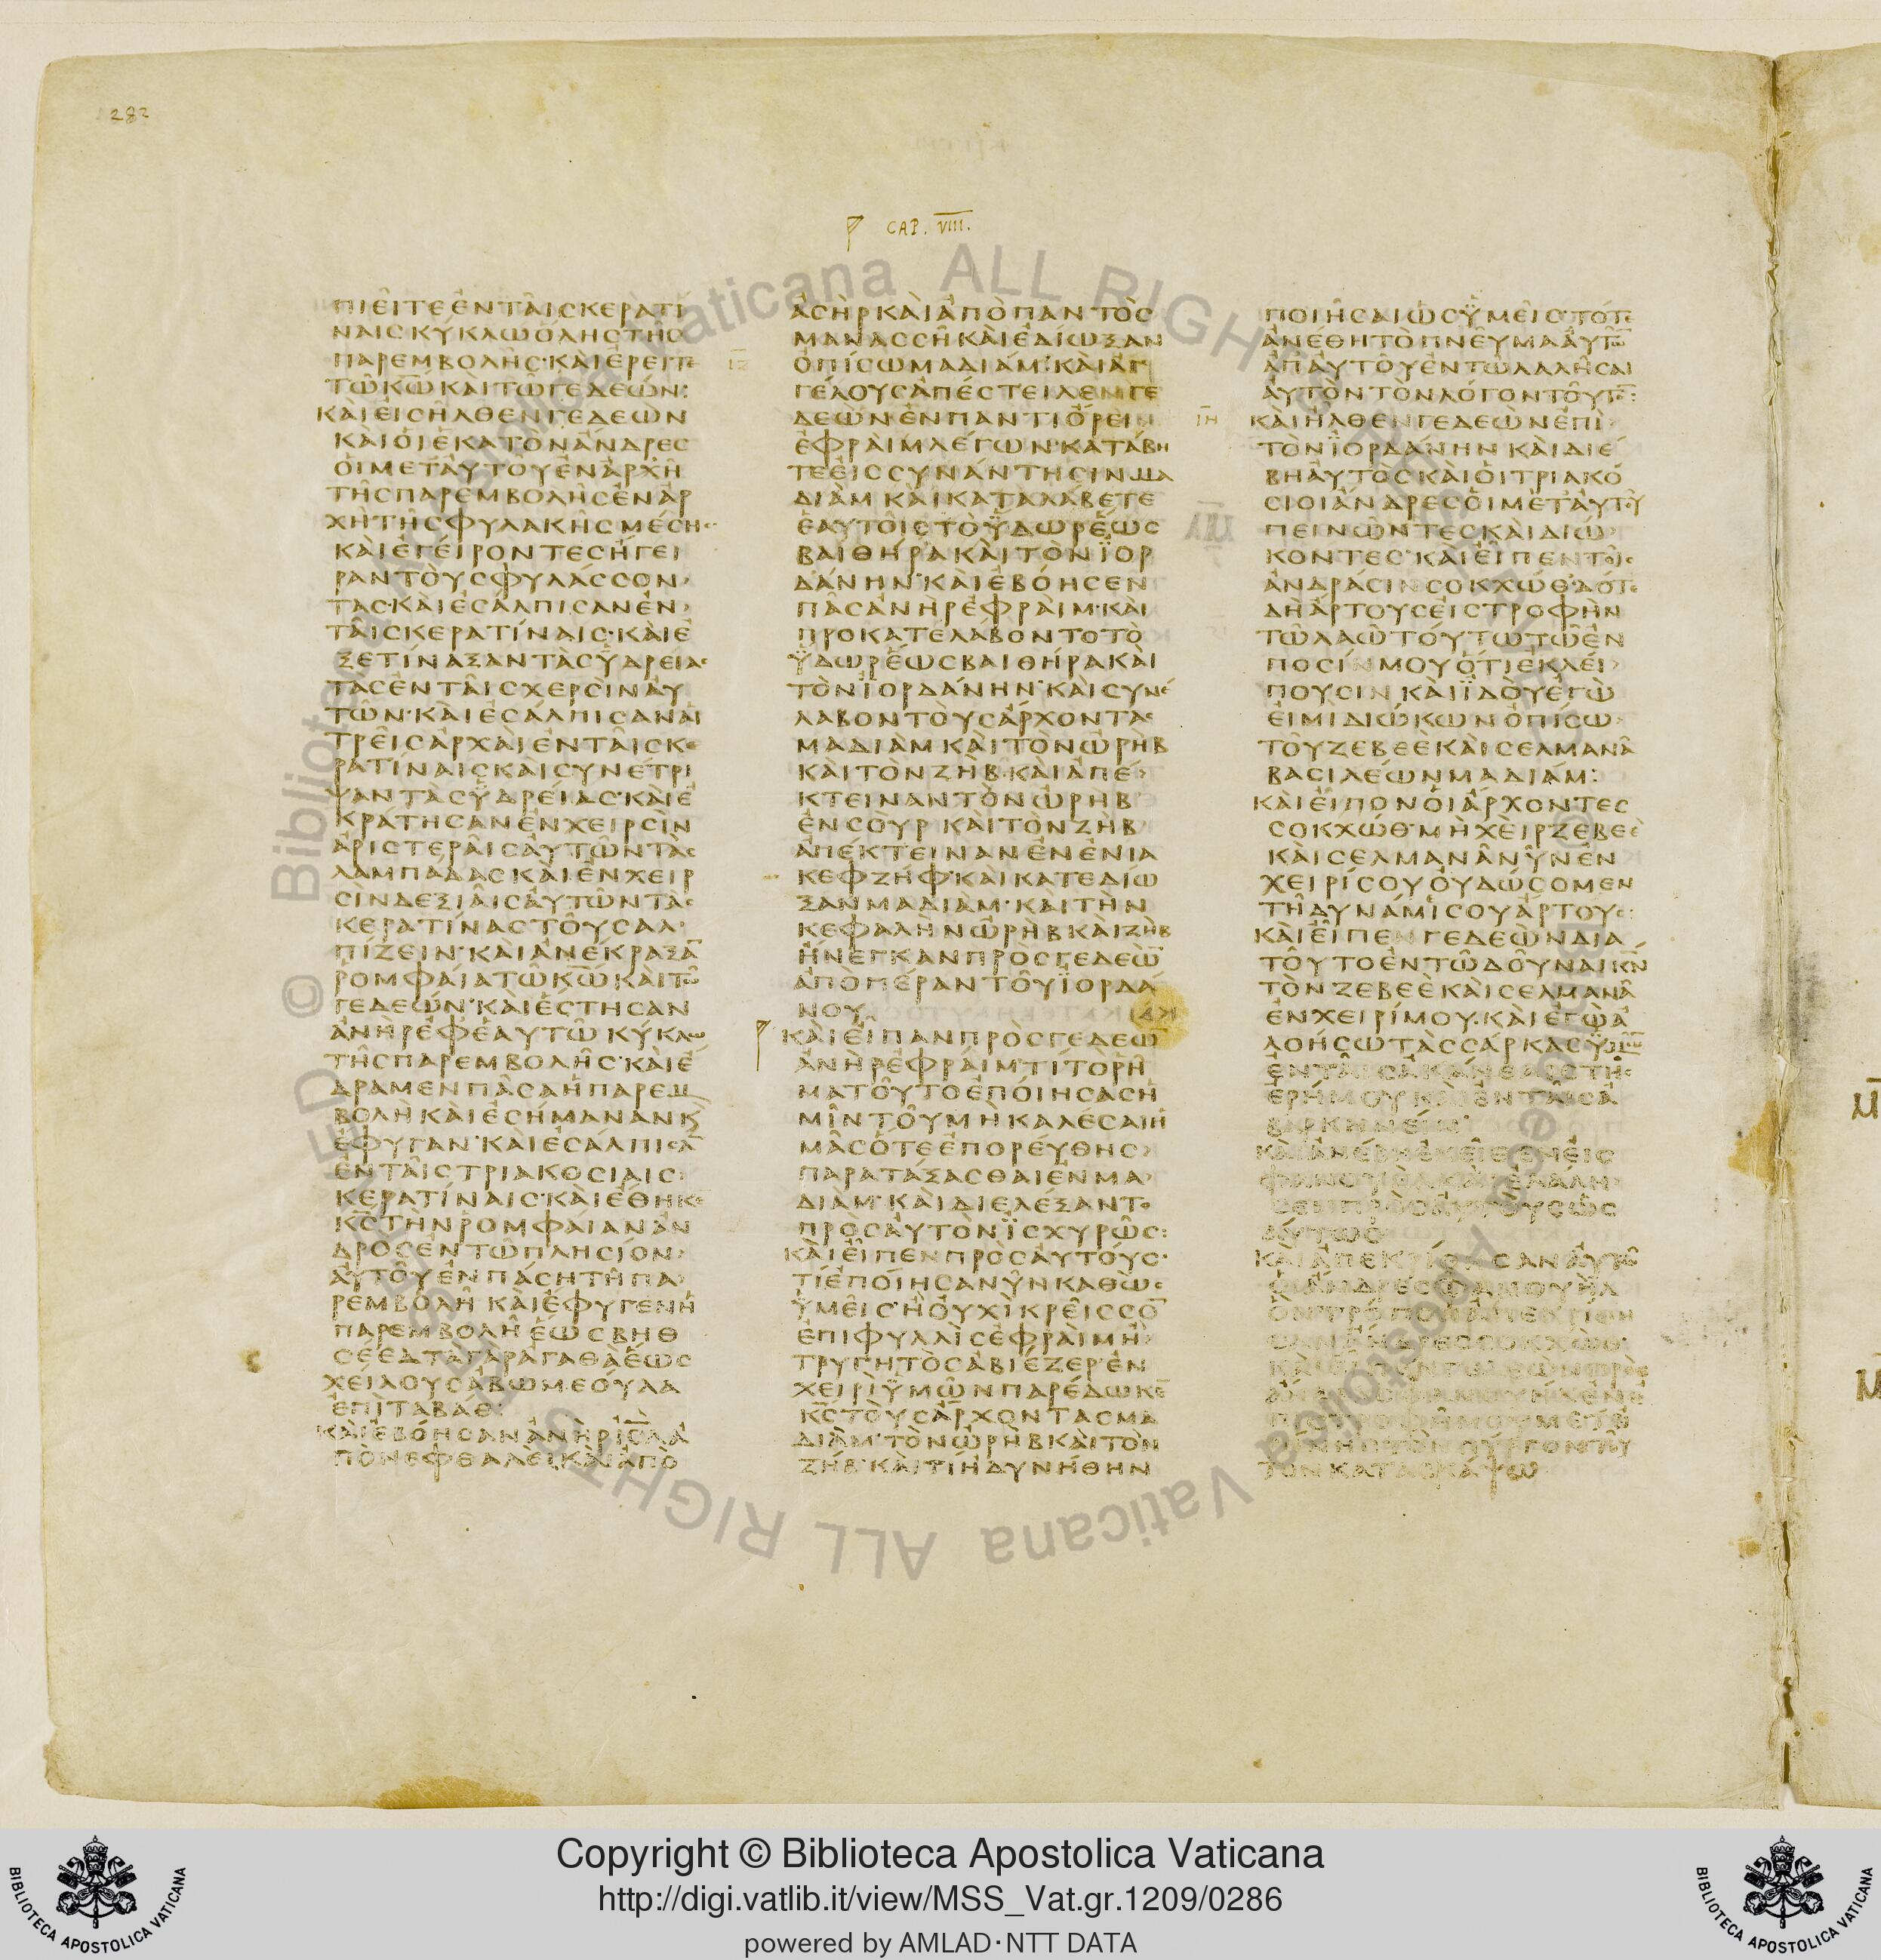 282
CAP. VIII.
ΠΙΕΙΤΕΕΝΤΑΙΣΚΕΡΑΤΙ
ΝΑΙΣΚΥΚΛΩΟΛΗΣΤΗΣ
ΠΑΡΕΜΒΟΛΗΣ·ΚΑΙΕΡΕΙΤΕ
ΤΩΚΩΚΑΙΤΩΓΕΔΕΩΝ:
ΚΑΙΕΙΣΗΛΘΕΝΓΕΔΕΩΝ
ΚΑΙΟΙΕΚΑΤΟΝΑΝΔΡΕΣ
ΟΙΜΕΤΑΥΤΟΥΕΝΑΡΧΗ
ΤΗΣΠΑΡΕΜΒΟΛΗΣΕΝΑΡ
ΧΗΤΗΣΦΥΛΑΚΗΣΜΕΣΗΣ
ΚΑΙΕΓΕΙΡΟΝΤΕΣΗΓΕΙ
ΡΑΝΤΟΥΣΦΥΛΑΣΣΟΝ
ΤΑΣ·ΚΑΙΕΣΑΛΠΙΣΑΝΕΝ
ΤΑΙΣΚΕΡΑΤΙΝΑΙΣ·ΚΑΙΕ
ΞΕΤΙΝΑΞΑΝΤΑΣΫΔΡΕΙΑΣ
ΤΑΣΕΝΤΑΙΣΧΕΡΣΙΝΑΥ
ΤΩΝ·ΚΑΙΕΣΑΛΠΙΣΑΝΑΙ
ΤΡΕΙΣΑΡΧΑΙΕΝΤΑΙΣΚΕ
ΡΑΤΙΝΑΙΣΚΑΙΣΥΝΕΤΡΙ
ΨΑΝΤΑΣΫΔΡΕΙΑΣ·ΚΑΙΕ
ΚΡΑΤΗΣΑΝΕΝΧΕΙΡΣΙΝ
ΑΡΙΣΤΕΡΑΙΣΑΥΤΩΝΤΑΣ
ΛΑΜΠΑΔΑΣΚΑΙΕΝΧΕΙΡ
ΣΙΝΔΕΞΙΑΙΣΑΥΤΩΝΤΑΣ
ΚΕΡΑΤΙΝΑΣΤΟΥΣΑΛ
ΠΙΖΕΙΝ·ΚΑΙΑΝΕΚΡΑΞΑ̅
ΡΟΜΦΑΙΑΤΩΚΩΚΑΙΤΩ
ΓΕΔΕΩΝ·ΚΑΙΕΣΤΗΣΑΝ
ΑΝΗΡΕΦΕΑΥΤΩΚΥΚΛΩ
ΤΗΣΠΑΡΕΜΒΟΛΗΣ·ΚΑΙΕ
ΔΡΑΜΕΝΠΑΣΑΗΠΑΡΕΜ
ΒΟΛΗΚΑΙΕΣΗΜΑΝΑΝΚ
ΕΦΥΓΑΝ·ΚΑΙΕΣΑΛΠΙΣΑ̅
ΕΝΤΑΙΣΤΡΙΑΚΟΣΙΑΙΣ
ΚΕΡΑΤΙΝΑΙΣ·ΚΑΙΕΘΗΚΕ̅
ΚΣΤΗΝΡΟΜΦΑΙΑΝΑΝ
ΔΡΟΣΕΝΤΩΠΛΗΣΙΟΝ
ΑΥΤΟΥΕΝΠΑΣΗΤΗΠΑ
ΡΕΜΒΟΛΗΚΑΙΕΦΥΓΕΝΗ
ΠΑΡΕΜΒΟΛΗΕΩΣΒΗΘ
ΣΕΕΔΤΑΓΑΡΑΓΑΘΑΕΩΣ
ΧΕΙΛΟΥΣΑΒΩΜΕΟΥΛΑ
ΕΠΙΤΑΒΑΘ:
ΚΑΙΕΒΟΗΣΑΝΑΝΗΡΙΣΛΑ
ΠΟΝΕΦΘΑΛΕΙΚΑΙΑΠΟ
ΑΣΗΡΚΑΙΑΠΟΠΑΝΤΟΣ
ΜΑΝΑΣΣΗΚΑΙΕΔΙΩΞΑΝ
ΙΖ ΟΠΙΣΩΜΑΔΙΑΜ·ΚΑΙΑΓ
ΓΕΛΟΥΣΑΠΕΣΤΕΙΛΕΝΓΕ
ΔΕΩΝΕΝΠΑΝΤΙΟΡΕΙ
ΕΦΡΑΙΜΛΕΓΩΝ·ΚΑΤΑΒΗ
ΤΕΕΙΣΣΥΝΑΝΤΗΣΙΝΜΑ
ΔΙΑΜΚΑΙΚΑΤΑΛΑΒΕΤΕ
ΕΑΥΤΟΙΣΤΟΫΔΩΡΕΩΣ
ΒΑΙΘΗΡΑΚΑΙΤΟΝΪΟΡ
ΔΑΝΗΝ·ΚΑΙΕΒΟΗΣΕΝ
ΠΑΣΑΝΗΡΕΦΡΑΙΜ·ΚΑΙ
ΠΡΟΚΑΤΕΛΑΒΟΝΤΟΤΟ
ΫΔΩΡΕΩΣΒΑΙΘΗΡΑΚΑΙ
ΤΟΝΪΟΡΔΑΝΗΝ·ΚΑΙΣΥΝΕ
ΛΑΒΟΝΤΟΥΣΑΡΧΟΝΤΑΣ
ΜΑΔΙΑΜΚΑΙΤΟΝΩΡΗΒ
ΚΑΙΤΟΝΖΗΒ·ΚΑΙΑΠΕ
ΚΤΕΙΝΑΝΤΟΝΩΡΗΒ
ΕΝΣΟΥΡΚΑΙΤΟΝΖΗΒ
ΑΠΕΚΤΕΙΝΑΝΕΝΕΝΙΑ
ΚΕΦΖΗΦ·ΚΑΙΚΑΤΕΔΙΩ
ΞΑΝΜΑΔΙΑΜ·ΚΑΙΤΗΝ
ΚΕΦΑΛΗΝΩΡΗΒΚΑΙΖΗΒ
ΗΝΕΓΚΑΝΠΡΟΣΓΕΔΕΩ̅
ΑΠΟΠΕΡΑΝΤΟΥΪΟΡΔΑ
ΝΟΥ
ΚΑΙΕΙΠΑΝΠΡΟΣΓΕΔΕΩ̅
ΑΝΗΡΕΦΡΑΙΜ·ΤΙΤΟΡΗ
ΜΑΤΟΥΤΟΕΠΟΙΗΣΑΣΗ
ΜΙΝΤΟΥΜΗΚΑΛΕΣΑΙΗ
ΜΑΣΟΤΕΕΠΟΡΕΥΘΗΣ
ΠΑΡΑΤΑΞΑΣΘΑΙΕΝΜΑ
ΔΙΑΜ·ΚΑΙΔΙΕΛΕΞΑΝΤΟ
ΠΡΟΣΑΥΤΟΝΪΣΧΥΡΩΣ:
ΚΑΙΕΙΠΕΝΠΡΟΣΑΥΤΟΥΣ·
ΤΙΕΠΟΙΗΣΑΝΥΝΚΑΘΩΣ
ΫΜΕΙΣ·ΗΟΥΧΙΚΡΕΙΣΣΟ̅
ΕΠΙΦΥΛΛΙΣΕΦΡΑΙΜΗ
ΤΡΥΓΗΤΟΣΑΒΙΕΖΕΡ·ΕΝ
ΧΕΙΡΙΫΜΩΝΠΑΡΕΔΩΚΕ̅
ΚΣΤΟΥΣΑΡΧΟΝΤΑΣΜΑ
ΔΙΑΜ·ΤΟΝΩΡΗΒΚΑΙΤΟΝ
ΖΗΒ·ΚΑΙΤΙΗΔΥΝΗΘΗΝ
ΠΟΙΗΣΑΙΩΣΫΜΕΙΣ·ΤΟΤΕ
ΑΝΕΘΗΤΟΠΝΕΥΜΑΑΥΤΩ̅
ΑΠΑΥΤΟΥΕΝΤΩΛΑΛΗΣΑΙ
ΑΥΤΟΝΤΟΝΛΟΓΟΝΤΟΥΤΟ̅:
ΙΗ ΚΑΙΗΛΘΕΝΓΕΔΕΩΝΕΠΙ
ΤΟΝΪΟΡΔΑΝΗΝΚΑΙΔΙΕ
ΒΗΑΥΤΟΣΚΑΙΟΙΤΡΙΑΚΟ
ΣΙΟΙΑΝΔΡΕΣΟΙΜΕΤΑΥΤΟΥ
ΠΕΙΝΩΝΤΕΣΚΑΙΔΙΩ
ΚΟΝΤΕΣ·ΚΑΙΕΙΠΕΝΤΟΙΣ
ΑΝΔΡΑΣΙΝΣΟΚΧΩΘ·ΔΟΤΕ
ΔΗΑΡΤΟΥΣΕΙΣΤΡΟΦΗΝ
ΤΩΛΑΩΤΟΥΤΩΤΩΕΝ
ΠΟΣΙΝΜΟΥΟΤΙΕΚΛΕΙ
ΠΟΥΣΙΝΚΑΙΪΔΟΥΕΓΩ
ΕΙΜΙΔΙΩΚΩΝΟΠΙΣΩ
ΤΟΥΖΕΒΕΕΚΑΙΣΕΛΜΑΝΑ
ΒΑΣΙΛΕΩΝΜΑΔΙΑΜ:
ΚΑΙΕΙΠΟΝΟΙΑΡΧΟΝΤΕΣ
ΣΟΚΧΩΘ·ΜΗΧΕΙΡΖΕΒΕΕ
ΚΑΙΣΕΛΜΑΝΑΝΥΝΕΝ
ΧΕΙΡΙΣΟΥΟΥΔΩΣΟΜΕΝ
ΤΗΔΥΝΑΜΙΣΟΥΑΡΤΟΥΣ:
ΚΑΙΕΙΠΕΝΓΕΔΕΩΝΔΙΑ
ΤΟΥΤΟΕΝΤΩΔΟΥΝΑΙΚΝ
ΤΟΝΖΕΒΕΕΚΑΙΣΕΛΜΑΝΑ
ΕΝΧΕΙΡΙΜΟΥ·ΚΑΙΕΓΩΑ
ΛΟΗΣΩΤΑΣΣΑΡΚΑΣΫΜΩ̅
ΕΝΤΑΙΣΑΚΑΝΘΑΙΣΤΗΣ
ΕΡΗΜΟΥΚΑΙΕΝΤΑΙΣΑ
ΒΑΡΚΗΝΕΙΝ
ΚΑΙΑΝΕΒΗΕΚΕΙΘΕΝΕΙΣ
ΦΑΝΟΥΗΛΚΑΙΕΛΑΛΗ
ΣΕΝΠΡΟΣΑΥΤΟΥΣΩΣ
ΑΥΤΩΣ
ΚΑΙΑΠΕΚΡΙΘΗΣΑΝΑΥΤΩ
ΟΙΑΝΔΡΕΣΦΑΝΟΥΗΛ
ΟΝΤΡΟΠΟΝΑΠΕΚΡΙΘΗ
ΣΑΝΑΝΔΡΕΣΣΟΚΧΩΘ
ΤΟΝΚΑΤΑΣΚΑΨΩ
Copyright © Biblioteca Apostolica Vaticana
http://digi.vatlib.it/view/MSS_Vat.gr.1209/0286
powered by AMLAD·NTT DATA